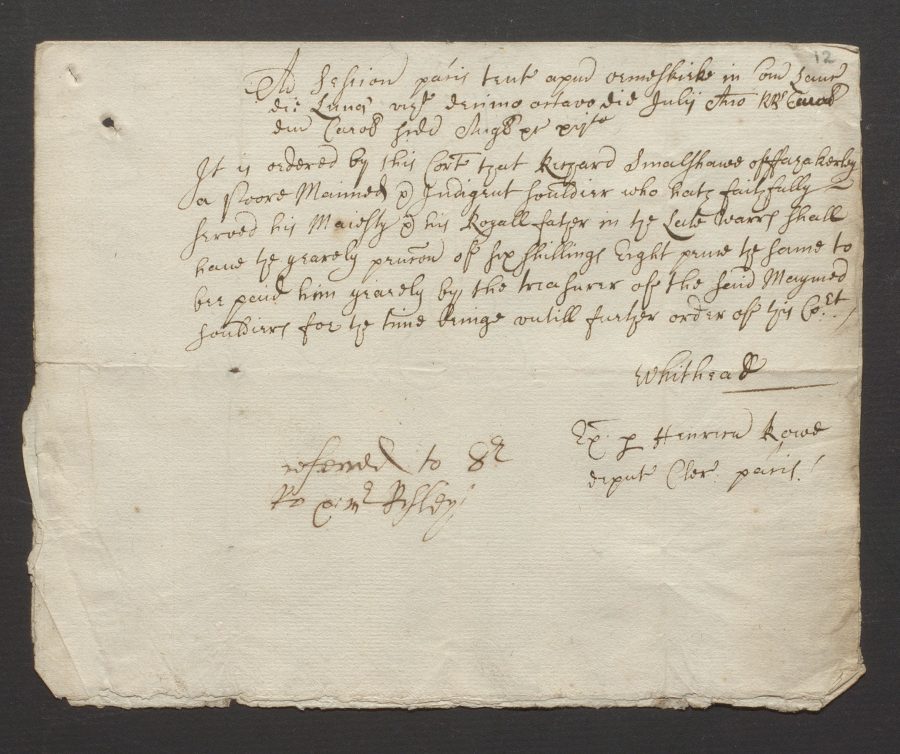 12
Ad Session pacis tent apud Ormeskirke in Com Lanc
die Lune vizt decimo octavo die Julij Ano RRs
dni Carol scdi Angl &c
It is ordered by this Cort that Richard Smalshawe of ffazakerley
a Poore Maimed & Indigent Souldier who hath faithfully
served his Maiesty & his Royall father in the Late Warrs shall
have the yearely pencon of six shillings Eight pence the same to
bee paid him yearely by the treasurer of the said Maymed
Souldiers for the time beinge untill further order of this Cort
Whithead
Ex. p Henricu Rowe
deput Cler. pacis
referred to Sr
Ro & mr Risley